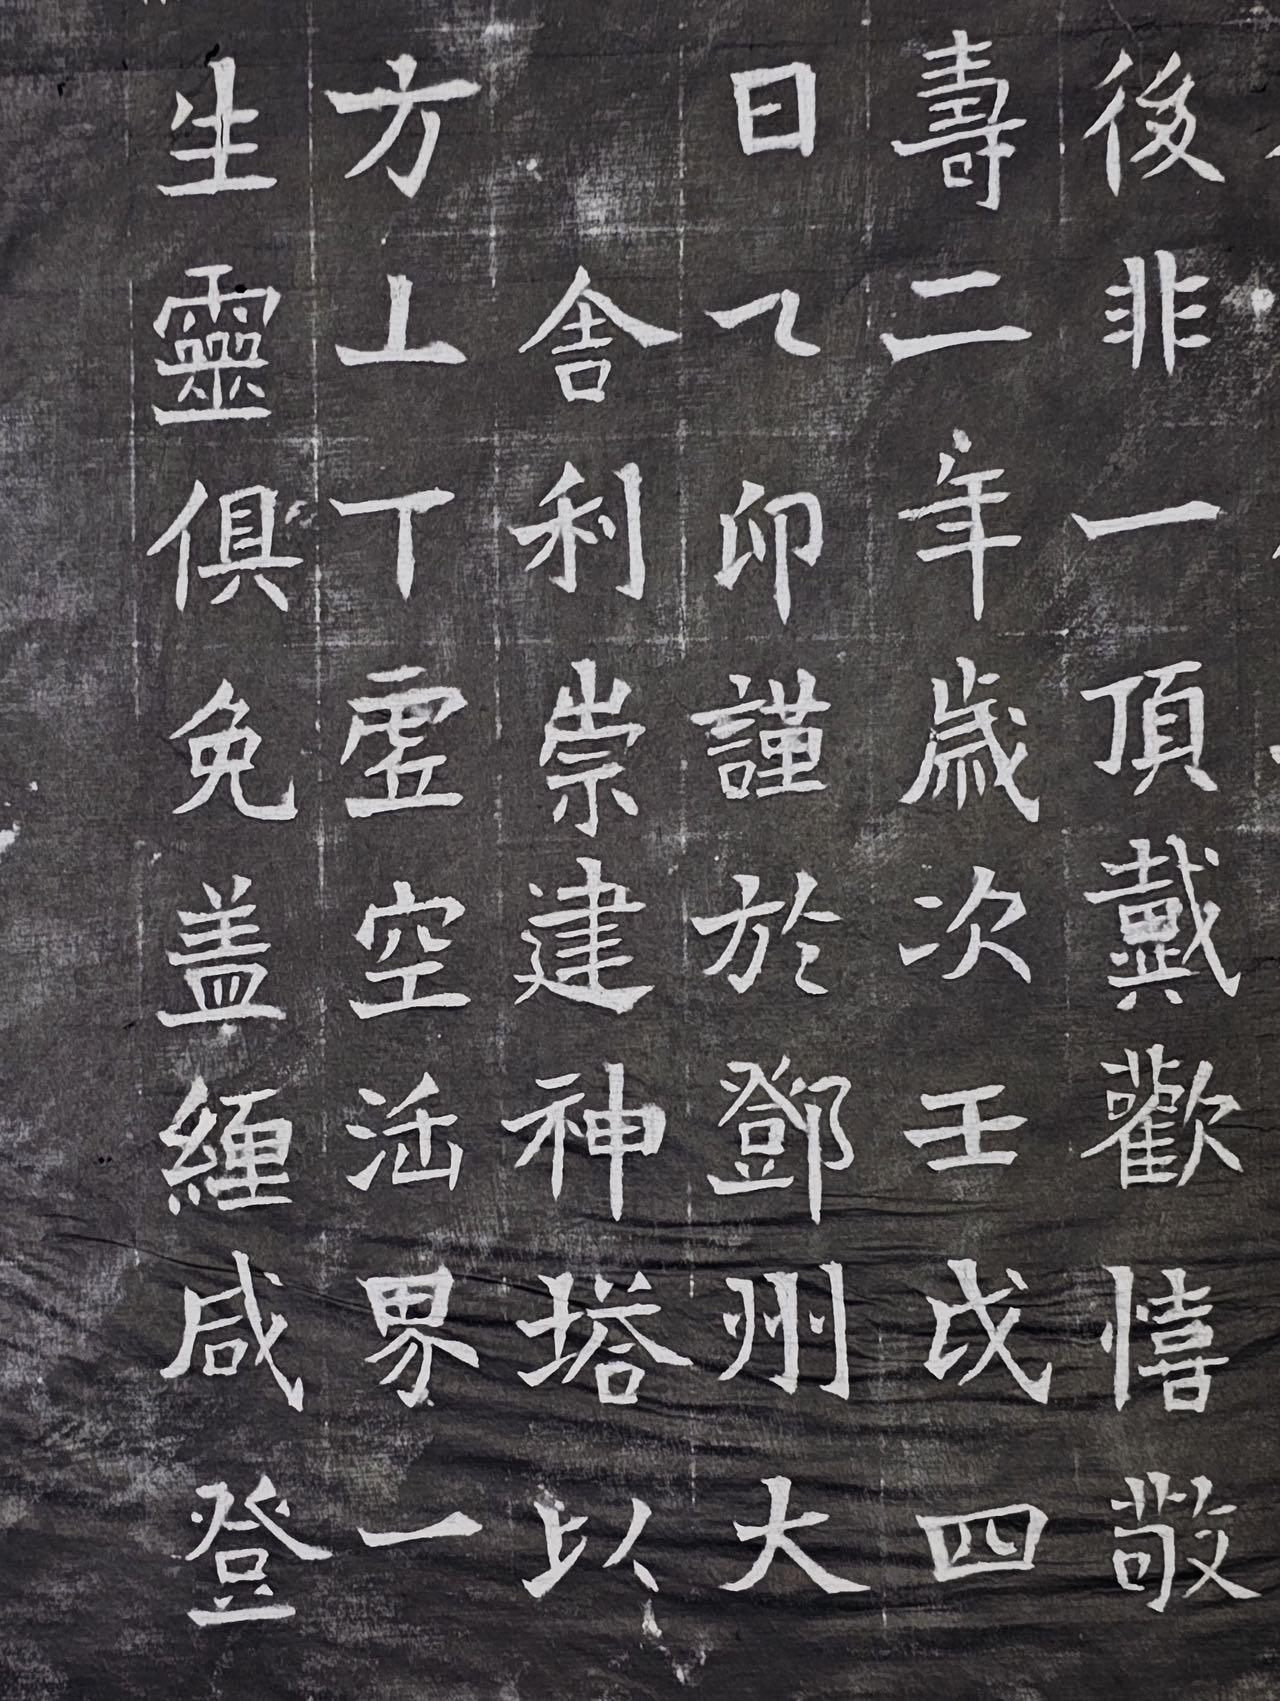 後非一頂戴歡憘敬
壽二年歳次壬戌四
日乙卯謹於鄧州大
舍利崇建神塔以
方上下虛空法界一
生靈俱免盖纏咸登